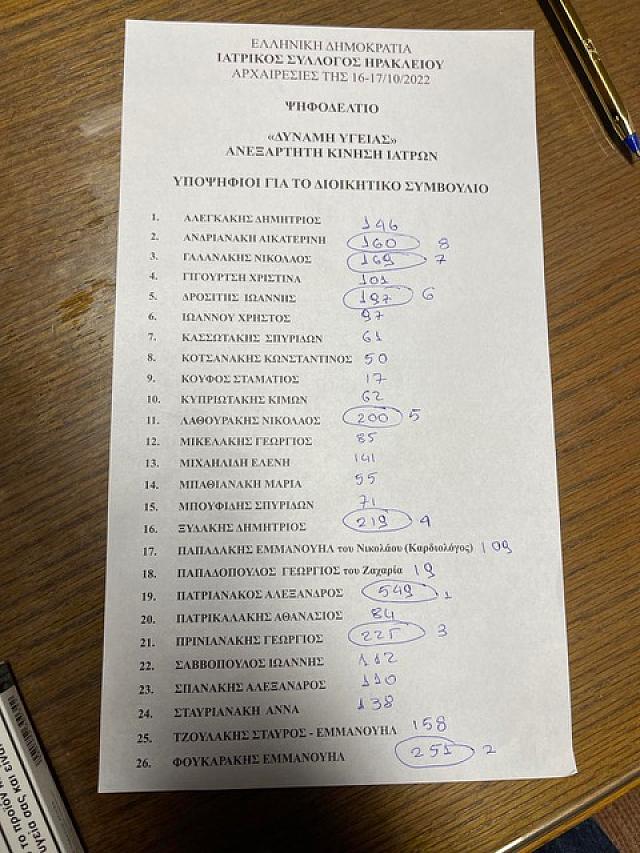 ΕΛΛΗΝΙΚΗ ΔΗΜΟΚΡΑΤΙΑ
ΙΑΤΡΙΚΟΣ ΣΥΛΛΟΓΟΣ ΗΡΑΚΛΕΙΟΥ
ΑΡΧΑΙΡΕΣΙΕΣ ΤΗΣ 16-17/10/2022
ΨΗΦΟΔΕΛΤΙΟ
«ΔΥΝΑΜΗ ΥΓΕΙΑΣ»
ΑΝΕΞΑΡΤΗΤΗ ΚΙΝΗΣΗ ΙΑΤΡΩΝ
ΥΠΟΨΗΦΙΟΙ ΓΙΑ ΤΟ ΔΙΟΙΚΗΤΙΚΟ ΣΥΜΒΟΥΛΙΟ
1. ΑΛΕΓΚΑΚΗΣ ΔΗΜΗΤΡΙΟΣ 146
2. ΑΝΔΡΙΑΝΑΚΗ ΑΙΚΑΤΕΡΙΝΗ 160 8
3. ΓΑΛΑΝΑΚΗΣ ΝΙΚΟΛΑΟΣ 169 7
4. ΓΙΓΟΥΡΤΣΗ ΧΡΙΣΤΙΝΑ 101
5. ΔΡΟΣΙΤΗΣ ΙΩΑΝΝΗΣ 197 6
6. ΙΩΑΝΝΟΥ ΧΡΗΣΤΟΣ 97
7. ΚΑΣΣΩΤΑΚΗΣ ΣΠΥΡΙΔΩΝ 61
8. ΚΟΤΣΑΝΑΚΗΣ ΚΩΝΣΤΑΝΤΙΝΟΣ 50
9. ΚΟΥΦΟΣ ΣΤΑΜΑΤΙΟΣ 17
10. ΚΥΠΡΙΩΤΑΚΗΣ ΚΙΜΩΝ 62
11. ΛΑΘΟΥΡΑΚΗΣ ΝΙΚΟΛΑΟΣ 200 5
12. ΜΙΚΕΛΑΚΗΣ ΓΕΩΡΓΙΟΣ 85
13. ΜΙΧΑΗΛΙΔΗ ΕΛΕΝΗ 141
14. ΜΠΑΘΙΑΝΑΚΗ ΜΑΡΙΑ 55
15. ΜΠΟΥΦΙΔΗΣ ΣΠΥΡΙΔΩΝ 71
16. ΞΥΔΑΚΗΣ ΔΗΜΗΤΡΙΟΣ 219 4
17. ΠΑΠΑΔΑΚΗΣ ΕΜΜΑΝΟΥΗΛ του Νικολάου (Καρδιολόγος) 109
18. ΠΑΠΑΔΟΠΟΥΛΟΣ ΓΕΩΡΓΙΟΣ του Ζαχαρία 19
19. ΠΑΤΡΙΑΝΑΚΟΣ ΑΛΕΞΑΝΔΡΟΣ 549 1
20. ΠΑΤΡΙΚΑΛΑΚΗΣ ΑΘΑΝΑΣΙΟΣ 84
21. ΠΡΙΝΙΑΝΑΚΗΣ ΓΕΩΡΓΙΟΣ 225 3
22. ΣΑΒΒΟΠΟΥΛΟΣ ΙΩΑΝΝΗΣ 112
23. ΣΠΑΝΑΚΗΣ ΑΛΕΞΑΝΔΡΟΣ 110
24. ΣΤΑΥΡΙΑΝΑΚΗ ΑΝΝΑ 138
25. ΤΖΟΥΛΑΚΗΣ ΣΤΑΥΡΟΣ - ΕΜΜΑΝΟΥΗΛ 158
26. ΦΟΥΚΑΡΑΚΗΣ ΕΜΜΑΝΟΥΗΛ 251 2
το προϊόν
υγεία σας και είναι